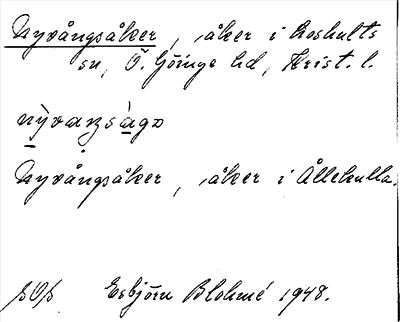 Nyvångsåker, åker i Loshults
sn, Ö. Göinge hd, Krist. l.
Nyvångsåker, åker i Ållekulla.
Esbjörn Blohmé 1948.